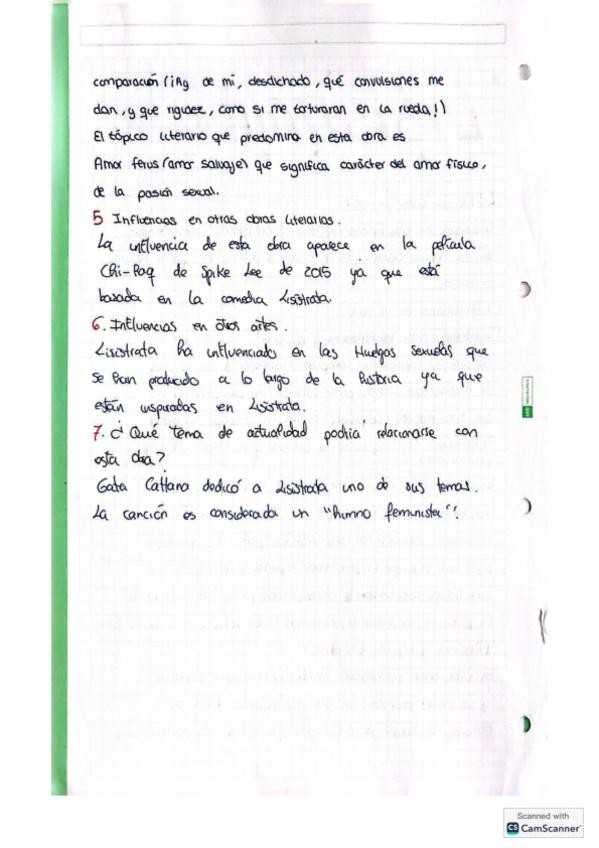 comparación (¡Ay de mí, desdichado, qué convulsiones me
dan, y que rigidez, como si me torturaran en la rueda!)
El tópico literario que predomina en esta obra es
Amor ferus (amor salvaje) que significa carácter del amor físico,
de la pasión sexual.
5 Influencias en otras obras literarias.
La influencia de esta obra aparece en la película
Chi-Raq de Spike Lee de 2015 ya que está
basada en la comedia Lisístrata.
6. Influencias en otras artes.
Lisistrata ha influenciado en las Huelgas sexuales que
se han producido a lo largo de la historia ya que
están inspiradas en Lisistrata.
7. ¿Qué tema de actualidad podría relacionarse con
esta obra?
Gata Cattana dedicó a Lisistrata uno de sus temas.
La canción es considerada un "himno feminista".
Scanned with
CS CamScanner